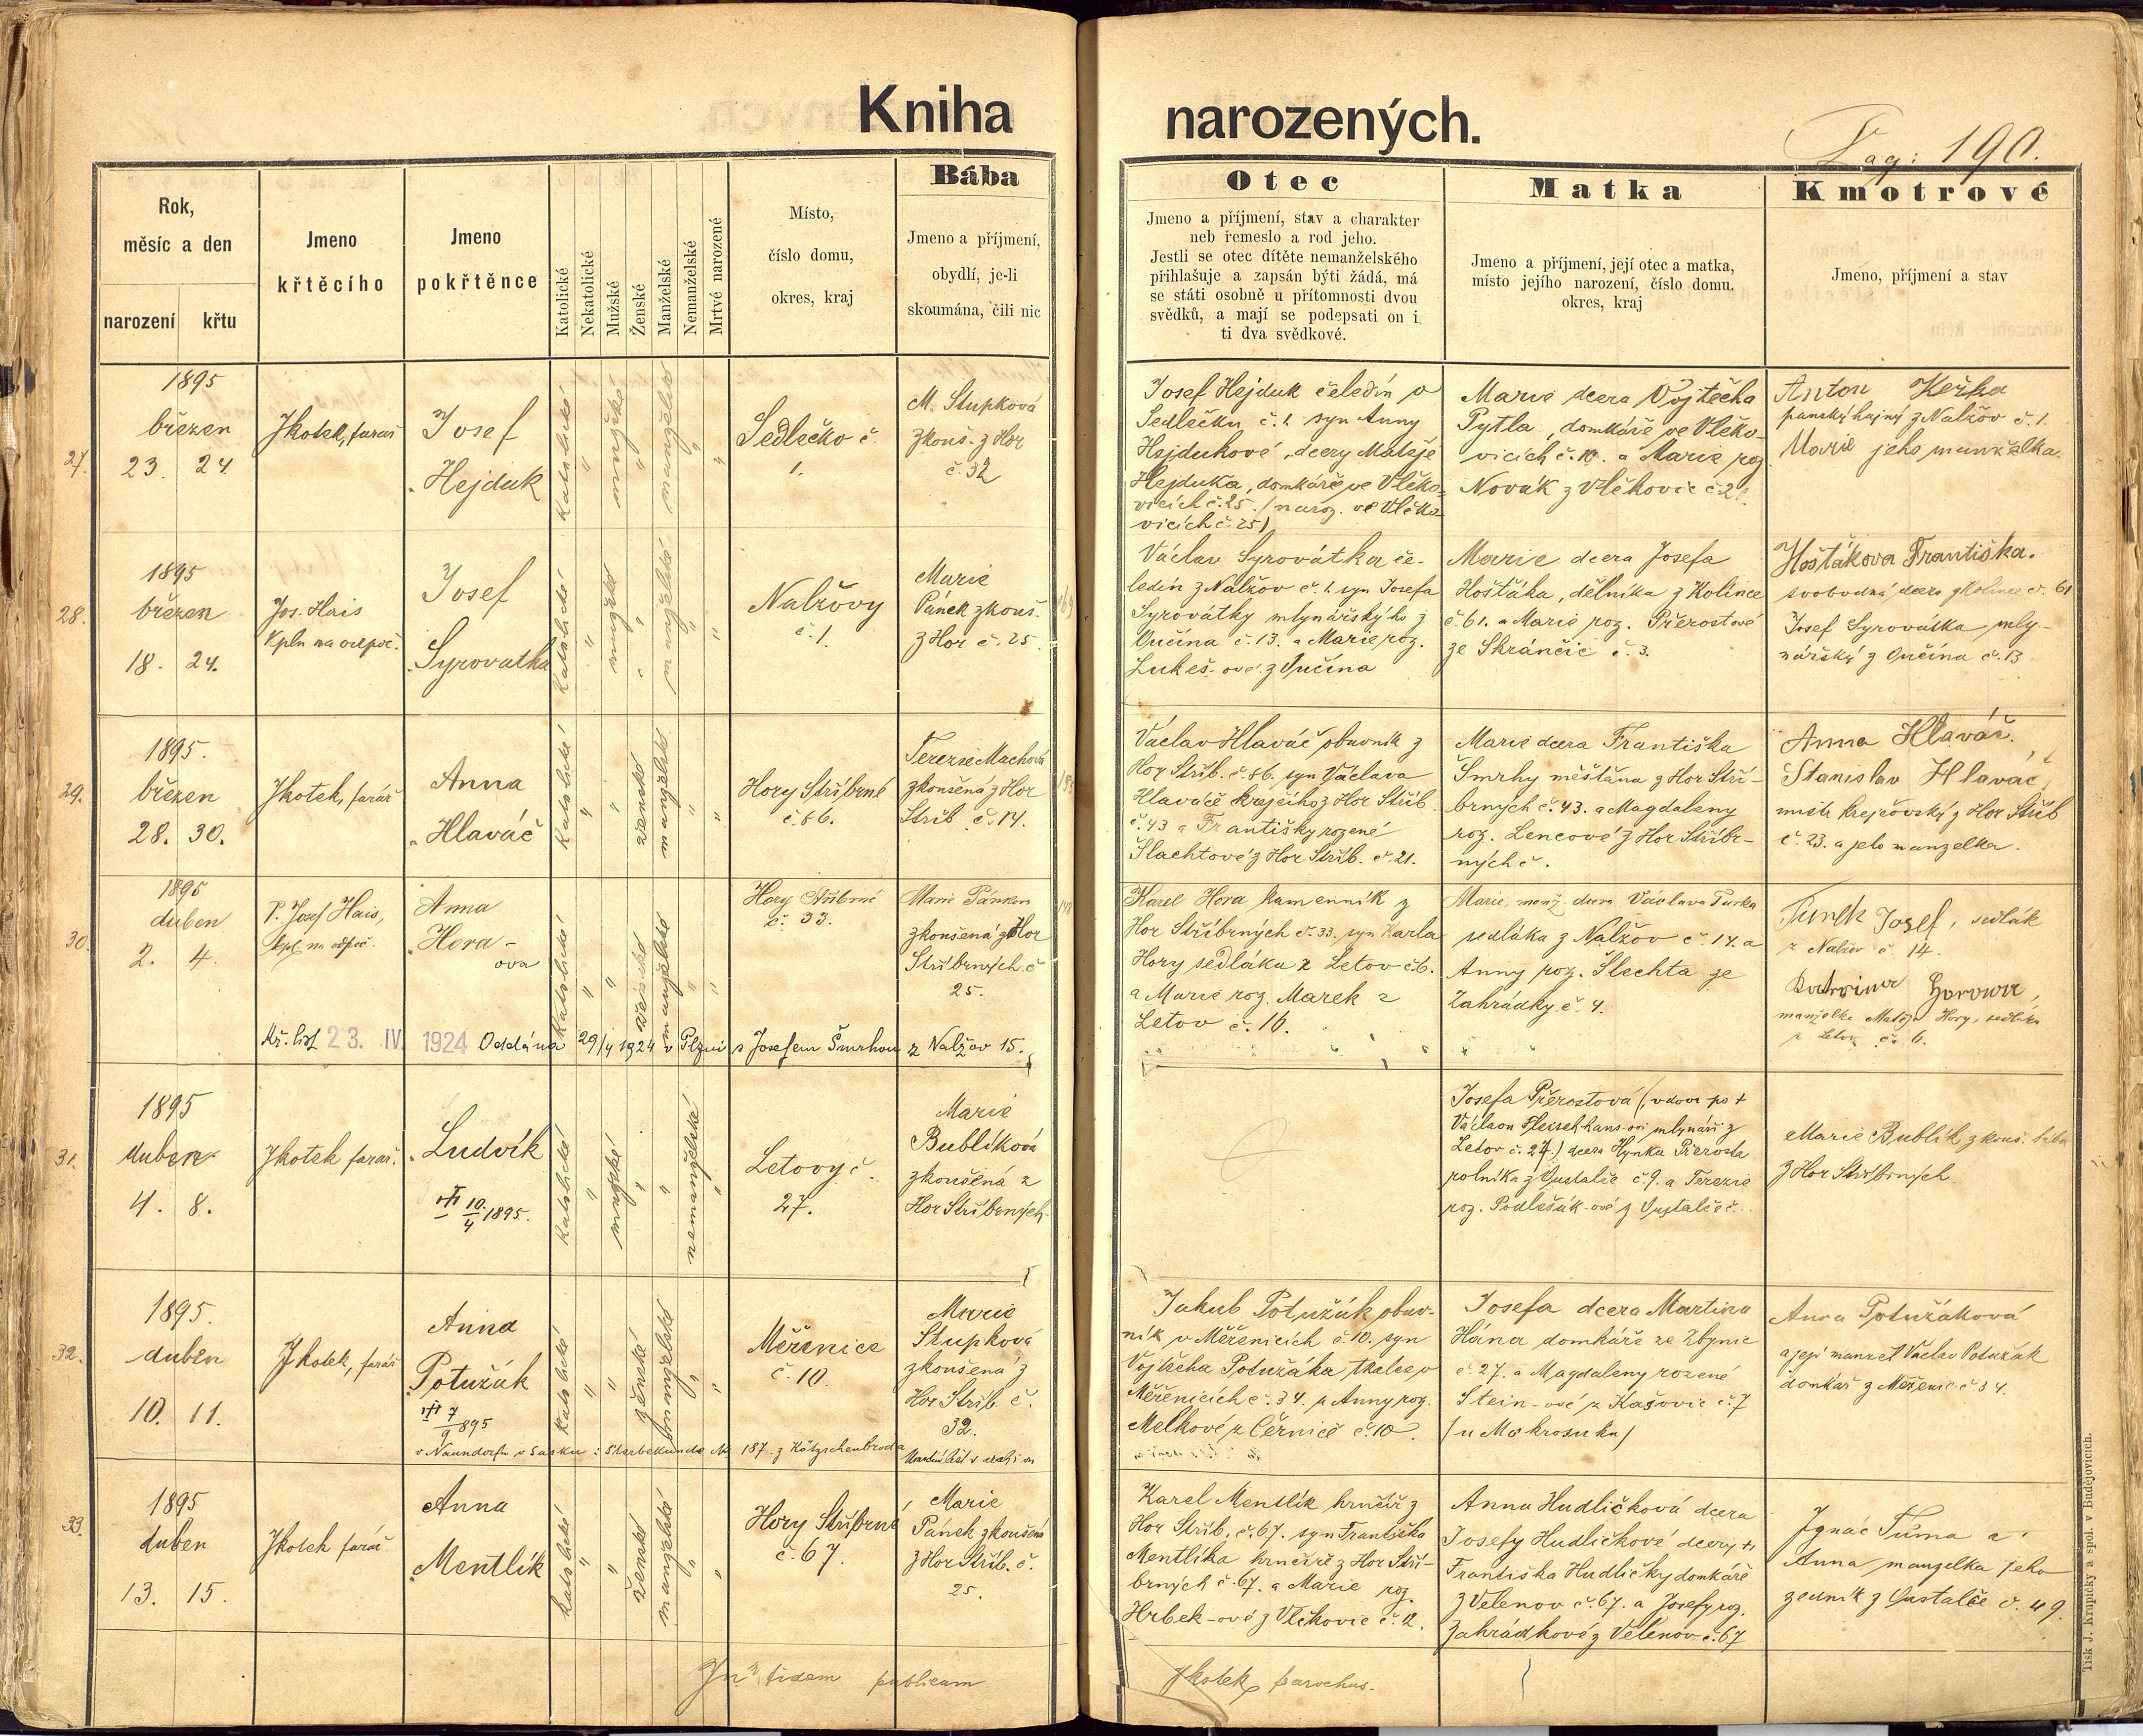 Kniha narozených.
Pag: 190.
Rok,
měsíc a den
narození křtu
Jmeno
křtěcího
Jmeno
pokřtěnce
Katolické
Nekatolické
Mužské
Ženské
Manželské
Nemanželské
Mrtvé narozené
Místo,
číslo domu,
okres, kraj
Bába
Jmeno a příjmení,
obydlí, je-li
skoumána, čili nic
Otec
Jmeno a příjmení, stav a charakter
neb řemeslo a rod jeho.
Jestli se otec dítěte nemanželského
přihlašuje a zapsán býti žádá, má
se státi osobně u přítomnosti dvou
svědků, a mají se podepsati on i
ti dva svědkové.
Matka
Jmeno a příjmení, její otec a matka,
místo jejího narození, číslo domu.
okres, kraj
Kmotrové
Jmeno, příjmení a stav
27.
1895
březen
23. 24.
Jkotek, farář
Josef
Hejduk
katolické
mužské
manželské
Sedlečko č.
1.
M. Stupková
zkouš. z Hor
č. 32
Josef Hejduk čeledín v
Sedlečku č. 1. syn Anny
Hejdukové, dcery Matěje
Hejduka, domkáře ve Vlčko-
vicích č. 25. (naroz. ve Vlčko-
vicích č. 25)
Marie dcera Vojtěcha
Pytla, domkáře ve Vlčko-
vicích č. 10. a Marie roz.
Novák z Vlčkovic č. 2
Anton
panský hajný z Nalžov č. 1.
Marie jeho manželka.
28.
1895
březen
18. 24.
Jos. Hais
kpln na odpoč.
Josef
Syrovatka
katolické
mužské
manželské
Nalžovy
č. 1.
Marie
Pánek zkouš.
z Hor č. 25.
Václav Syrovátka če-
ledín z Nalžov č. 1. syn Josefa
Syrovátky mlynářského z
Vučína č. 13. a Marie roz.
Lukeš-ové z Vučína
Marie dcera Josefa
Hošťáka, dělníka z Kolince
č. 61. a Marie roz. Přerostové
ze Skránčic č. 3.
Hošťákova Františka.
svobodná dcera z Kolince č. 61
Josef Syrovátka mly-
nářský z Vučína č. 13
29.
1895.
březen
28. 30.
Jkotek, farář
Anna
Hlaváč
katolické
ženské
manželské
Hory Stříbrné
č. 86.
Terezie Machová
zkoušená z Hor
Stříb. č. 14.
Václav Hlaváč obuvník z
Hor Stříb. č. 86. syn Václava
Hlaváče krejčího z Hor Stříb.
č. 43 a Františky rozené
Šlachtové z Hor Stříb. č. 21.
Marie dcera Františka
Smrhy měšťana z Hor Stří-
brných č. 43. a Magdaleny
roz. Lencové z Hor Stříbr-
ných č.
Anna Hlaváč.
Stanislav Hlaváč,
mistr krejčovský z Hor Stříb
č. 23. a jeho manzelka.
30.
1895
duben
2. 4.
P. Josef Hais,
kpl. na odpoč.
Anna
Hora-
ova
katolické
ženské
manželské
Hory Stříbrné
č. 33.
Marie Pánken
zkoušená z Hor
Stříbrných č
25.
Karel Hora kamenník z
Hor Stříbrných č. 33. syn Karla
Hory sedláka z Letov č. 6.
a Marie roz. Marek z
Letov č. 16.
Marie, manž. dcera Václava Turka
sedláka z Nalžov č. 14. a
Anny roz. Šlechta ze
Zahrádky č. 4.
Turek Josef, sedlák
z Nalžov č. 14.
Horowa,
manželka Matěje Hory, sedláka
z Letov č. 6.
Kř. list 23. IV. 1924 Oddána 29/4 1924 v Plzni s Josefem Šmrhou z Nalžov 15.
31.
1895
duben
4. 8.
Jkotek farář.
Ludvík
10./4 1895.
katolické
mužské
nemanželské
Letovy č.
27.
Marie
Bublíková
zkoušená z
Hor Stříbrných.
Josefa Přerostová (vdova po †
Václavu Fleischhans-ovi mlynáři z
Letov č. 27.) dcera Hynka Přerosta
rolníka z Gustalče č. 9. a Terezie
roz. Podlešák-ové z
Marie Bublík zkouš. bába
z Hor Stříbrných
32.
1895.
duben
10. 11.
Jkotek, farář
Anna
Potužák
7/9 895
katolické
ženské
manželské
Měřenice
č. 10.
Marie
Stupková
zkoušená z
Hor Stříb. č.
32.
v Naundorfu v Sasku: Sterbekunde No 187. z Kötzschenbroda
Jakub Potužák obuv-
ník v Měřenicích č. 10. syn
Vojtěcha Potužáka, tkalce v
Měřenicích č. 34. a Anny roz.
Melkové z Černice č. 10.
Josefa dcera Martina
Hána domkáře ze Zbynic
č. 27. a Magdaleny rozené
Stein-ové z Kašovic č. 7
(u Mokrosuku)
Anna Potužáková
a její manzel Václav Potužák
domkář z Měřenic č. 34.
33.
1895
duben
13. 15.
Jkotek farář
Anna
Mentlík
katolické
ženské
manželské
Hory Stříbrné
č. 67.
Marie
Pánek zkoušená
z Hor Stříb. č.
25.
Karel Mentlík hrnčíř z
Hor Stříb. č. 67. syn Františka
Mentlíka hrnčíře z Hor Stří-
brných č. 67. a Marie roz.
Hrbek-ové z Vlčkovic č. 12.
Anna Hudličková dcera
Josefy Hudličkové dcery †
Františka Hudličky domkáře
z Velenov č. 67. a Josefy roz.
Zahrádkové z Velenov č. 67
Ignác Tůma a
Anna manzelka jeho
zedník z Gustalče č. 49.
In fidem publicam
Jkotek parochus.
Tisk J. Krupičky a spol. v Budějovicích.